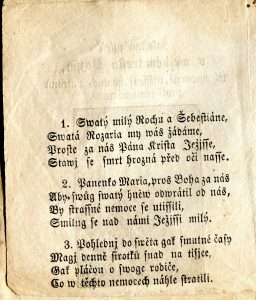 1. Swatý milý Rochu a Šebestiáne,
Swatá Rozaria my wás žádáme,
Proste za nás Pána Krista Ježisse,
Stawj se smrt hrozná před oči nasse.
2. Panenko Maria, pros Boha za nás
Aby swůg swatý hněw odwrátil od nás,
By strassné nemoce se utissili,
Smilug se nad námi Ježissi milý.
3. Pohledni do swěta gak smutné časy
Magj denně sirotků snad na tisjce,
Gak pláčou o swoge rodiče,
Co w těchto nemocech náhle stratili.